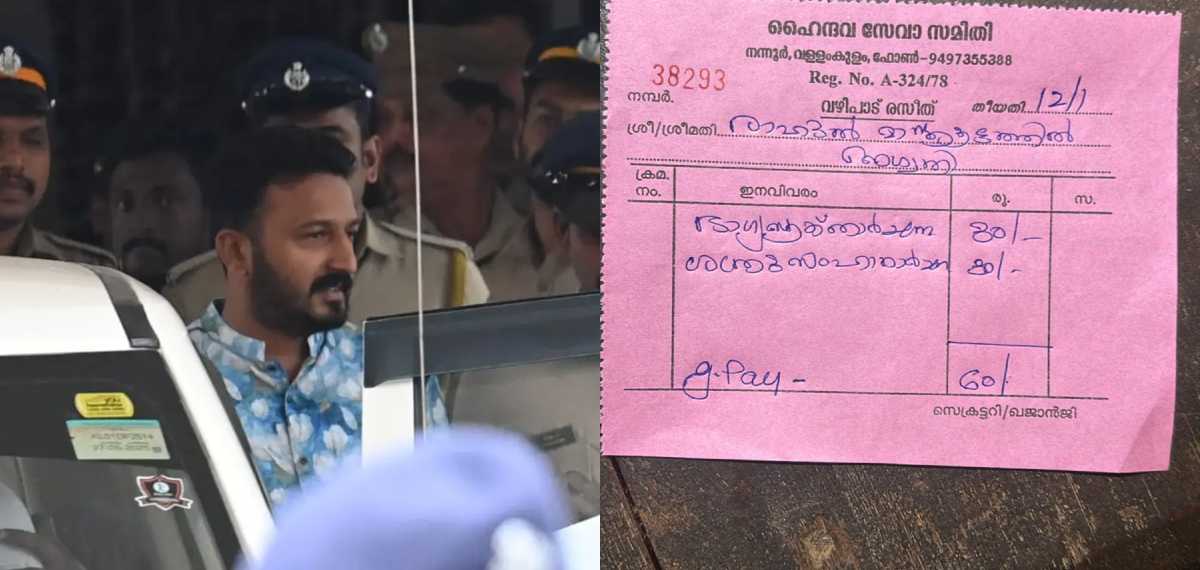 ഹൈന്ദവ സേവാ സമിതി
നന്നൂർ, വള്ളംകുളം, ഫോൺ-9497355388
38293
Reg. No. A-324/78
നമ്പർ.
വഴിപാട് രസീത്
തീയതി 12/1
ശ്രീ/ശ്രീമതി രാഹുൽ മാങ്കൂട്ടത്തിൽ
ക്രമ. നം.
ഇനവിവരം
രൂ.
സ.
ഭാഗ്യസൂക്താർച്ചന 30/-
ശത്രുസംഹാരാർച്ചന 30/-
g. Pay - 60/-
സെക്രട്ടറി/ഖജാൻജി